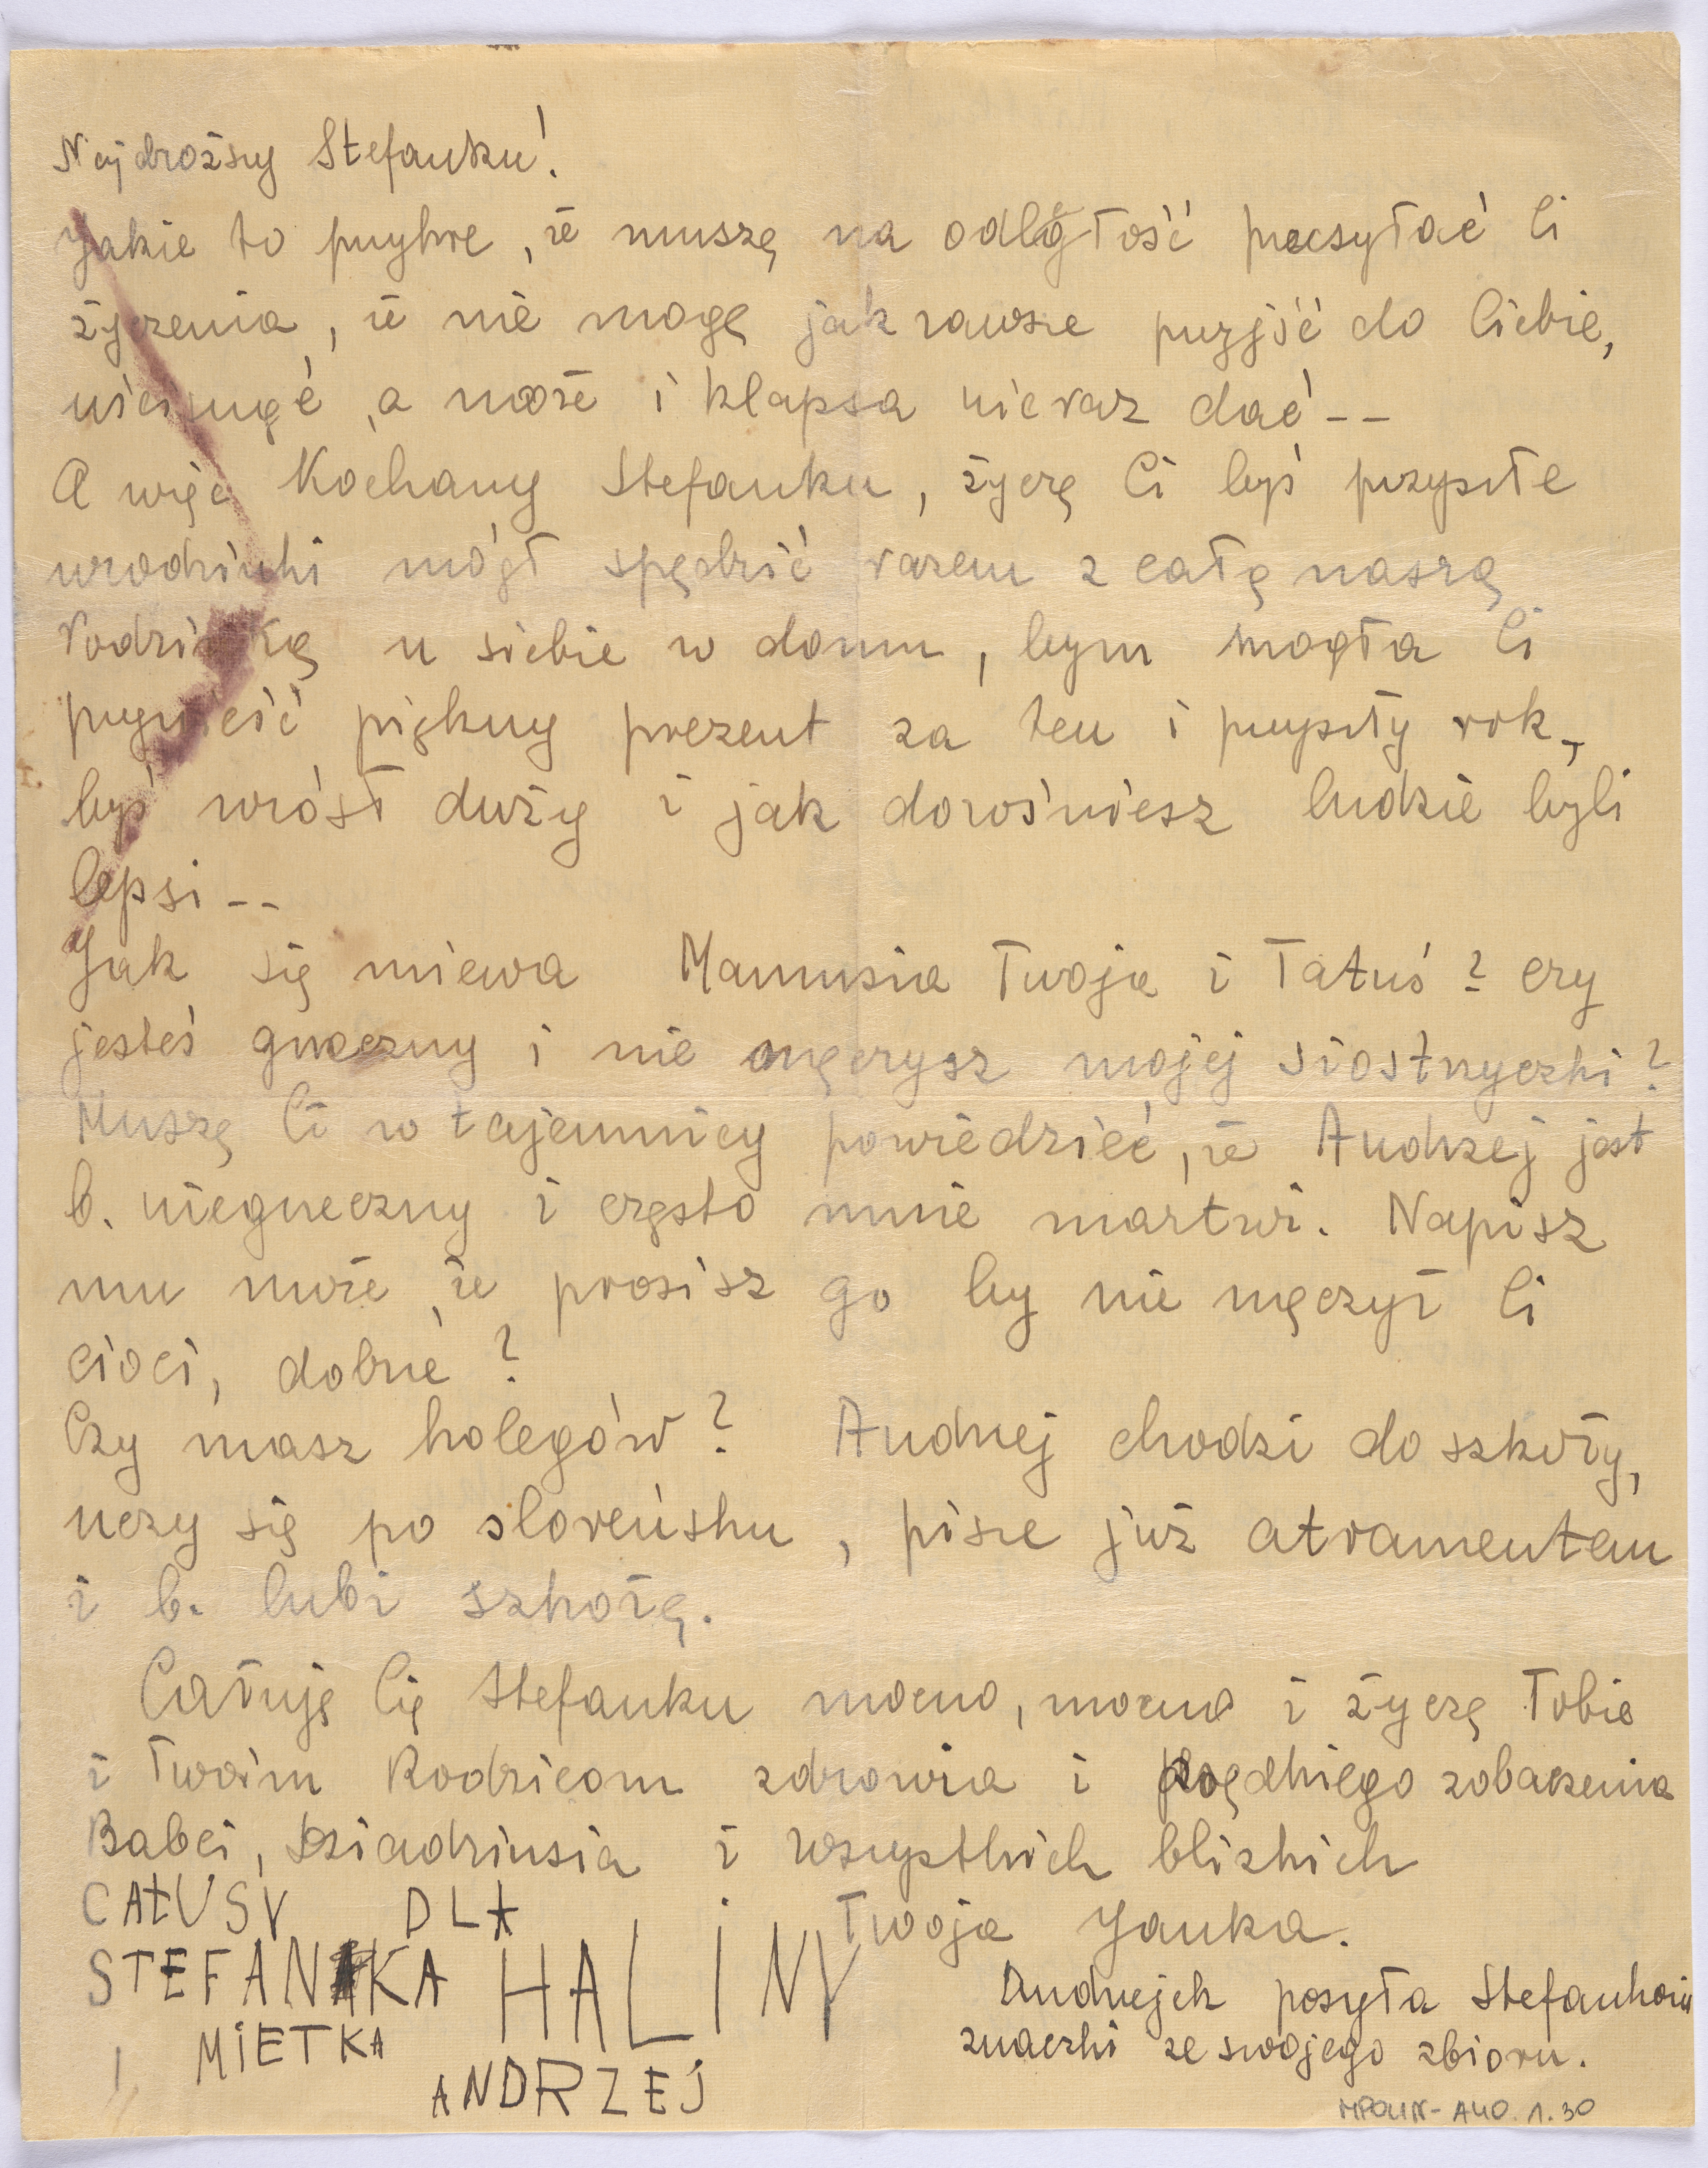 Najdroższy Stefanku!
Jakie to przykre, że muszę na odległość przesyłać Ci
życzenia, że nie mogę jak zawsze przyjść do Ciebie,
uścisnąć, a może i klapsa nieraz dać--
A więc Kochany Stefanku, życzę Ci byś przyszłe
urodzinki mógł spędzić razem z całą naszą
rodzinką u siebie w domu, bym mogła Ci
przynieść piękny prezent za ten i przyszły rok,
byś urósł duży i jak dorośniesz ludzie byli
lepsi--
Jak się miewa Mamusia Twoja i Tatuś? czy
jesteś grzeczny i nie męczysz mojej siostrzyczki?
Muszę Ci w tajemnicy powiedzieć, że Andrzej jest
b. niegrzeczny i często mnie martwi. Napisz
mu może, że prosisz go by nie męczył Ci
cioci, dobrze?
Czy masz kolegów? Andrzej chodzi do szkoły,
uczy się po sloveńsku, pisze już atramentem
i b. lubi szkołę.
Całuję Cię Stefanku mocno, mocno i życzę Tobie
i Twoim Rodzicom zdrowia i prędkiego zobaczenia
Babci, Dziadziusia i wszystkich bliskich
Twoja Janka.
CAŁUSY DLA
STEFANKA HALINY
I MIETKA
ANDRZEJ
Andrzejek posyła Stefankowi
znaczki ze swojego zbioru.
MPOLIN-A40.1.30